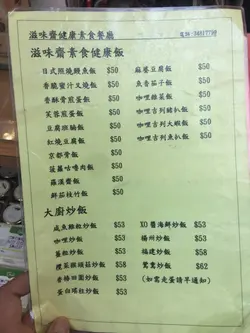 滋味齋健康素食餐廳
滋味齋素食健康飯
日式照燒鰻魚飯 $50
香脆蜜汁叉燒飯 $50
香酥骨煎蛋飯 $50
芙蓉煎蛋飯 $50
豆腐班腩飯 $50
紅燒豆腐飯 $50
京都骨飯 $50
菠蘿咕嚕肉飯 $50
羅漢齋飯 $50
鮮茄枝竹飯 $50
麻婆豆腐飯 $50
魚香茄子飯 $50
咖哩雜菜飯 $50
咖哩吉列豬扒飯 $50
咖哩吉列大蝦飯 $50
咖哩吉列魚扒飯 $50
大廚炒飯
咸魚雞粒炒飯 $53
咖哩炒飯 $53
薑粒炒飯 $53
欖菜銀絲菇炒飯 $58
香椿田園炒飯 $53
蛋白瑤柱炒飯 $53
XO醬海鮮炒飯 $53
楊州炒飯 $53
福建炒飯 $58
鴛鴦炒飯 $62
(如需走蛋請早通知)